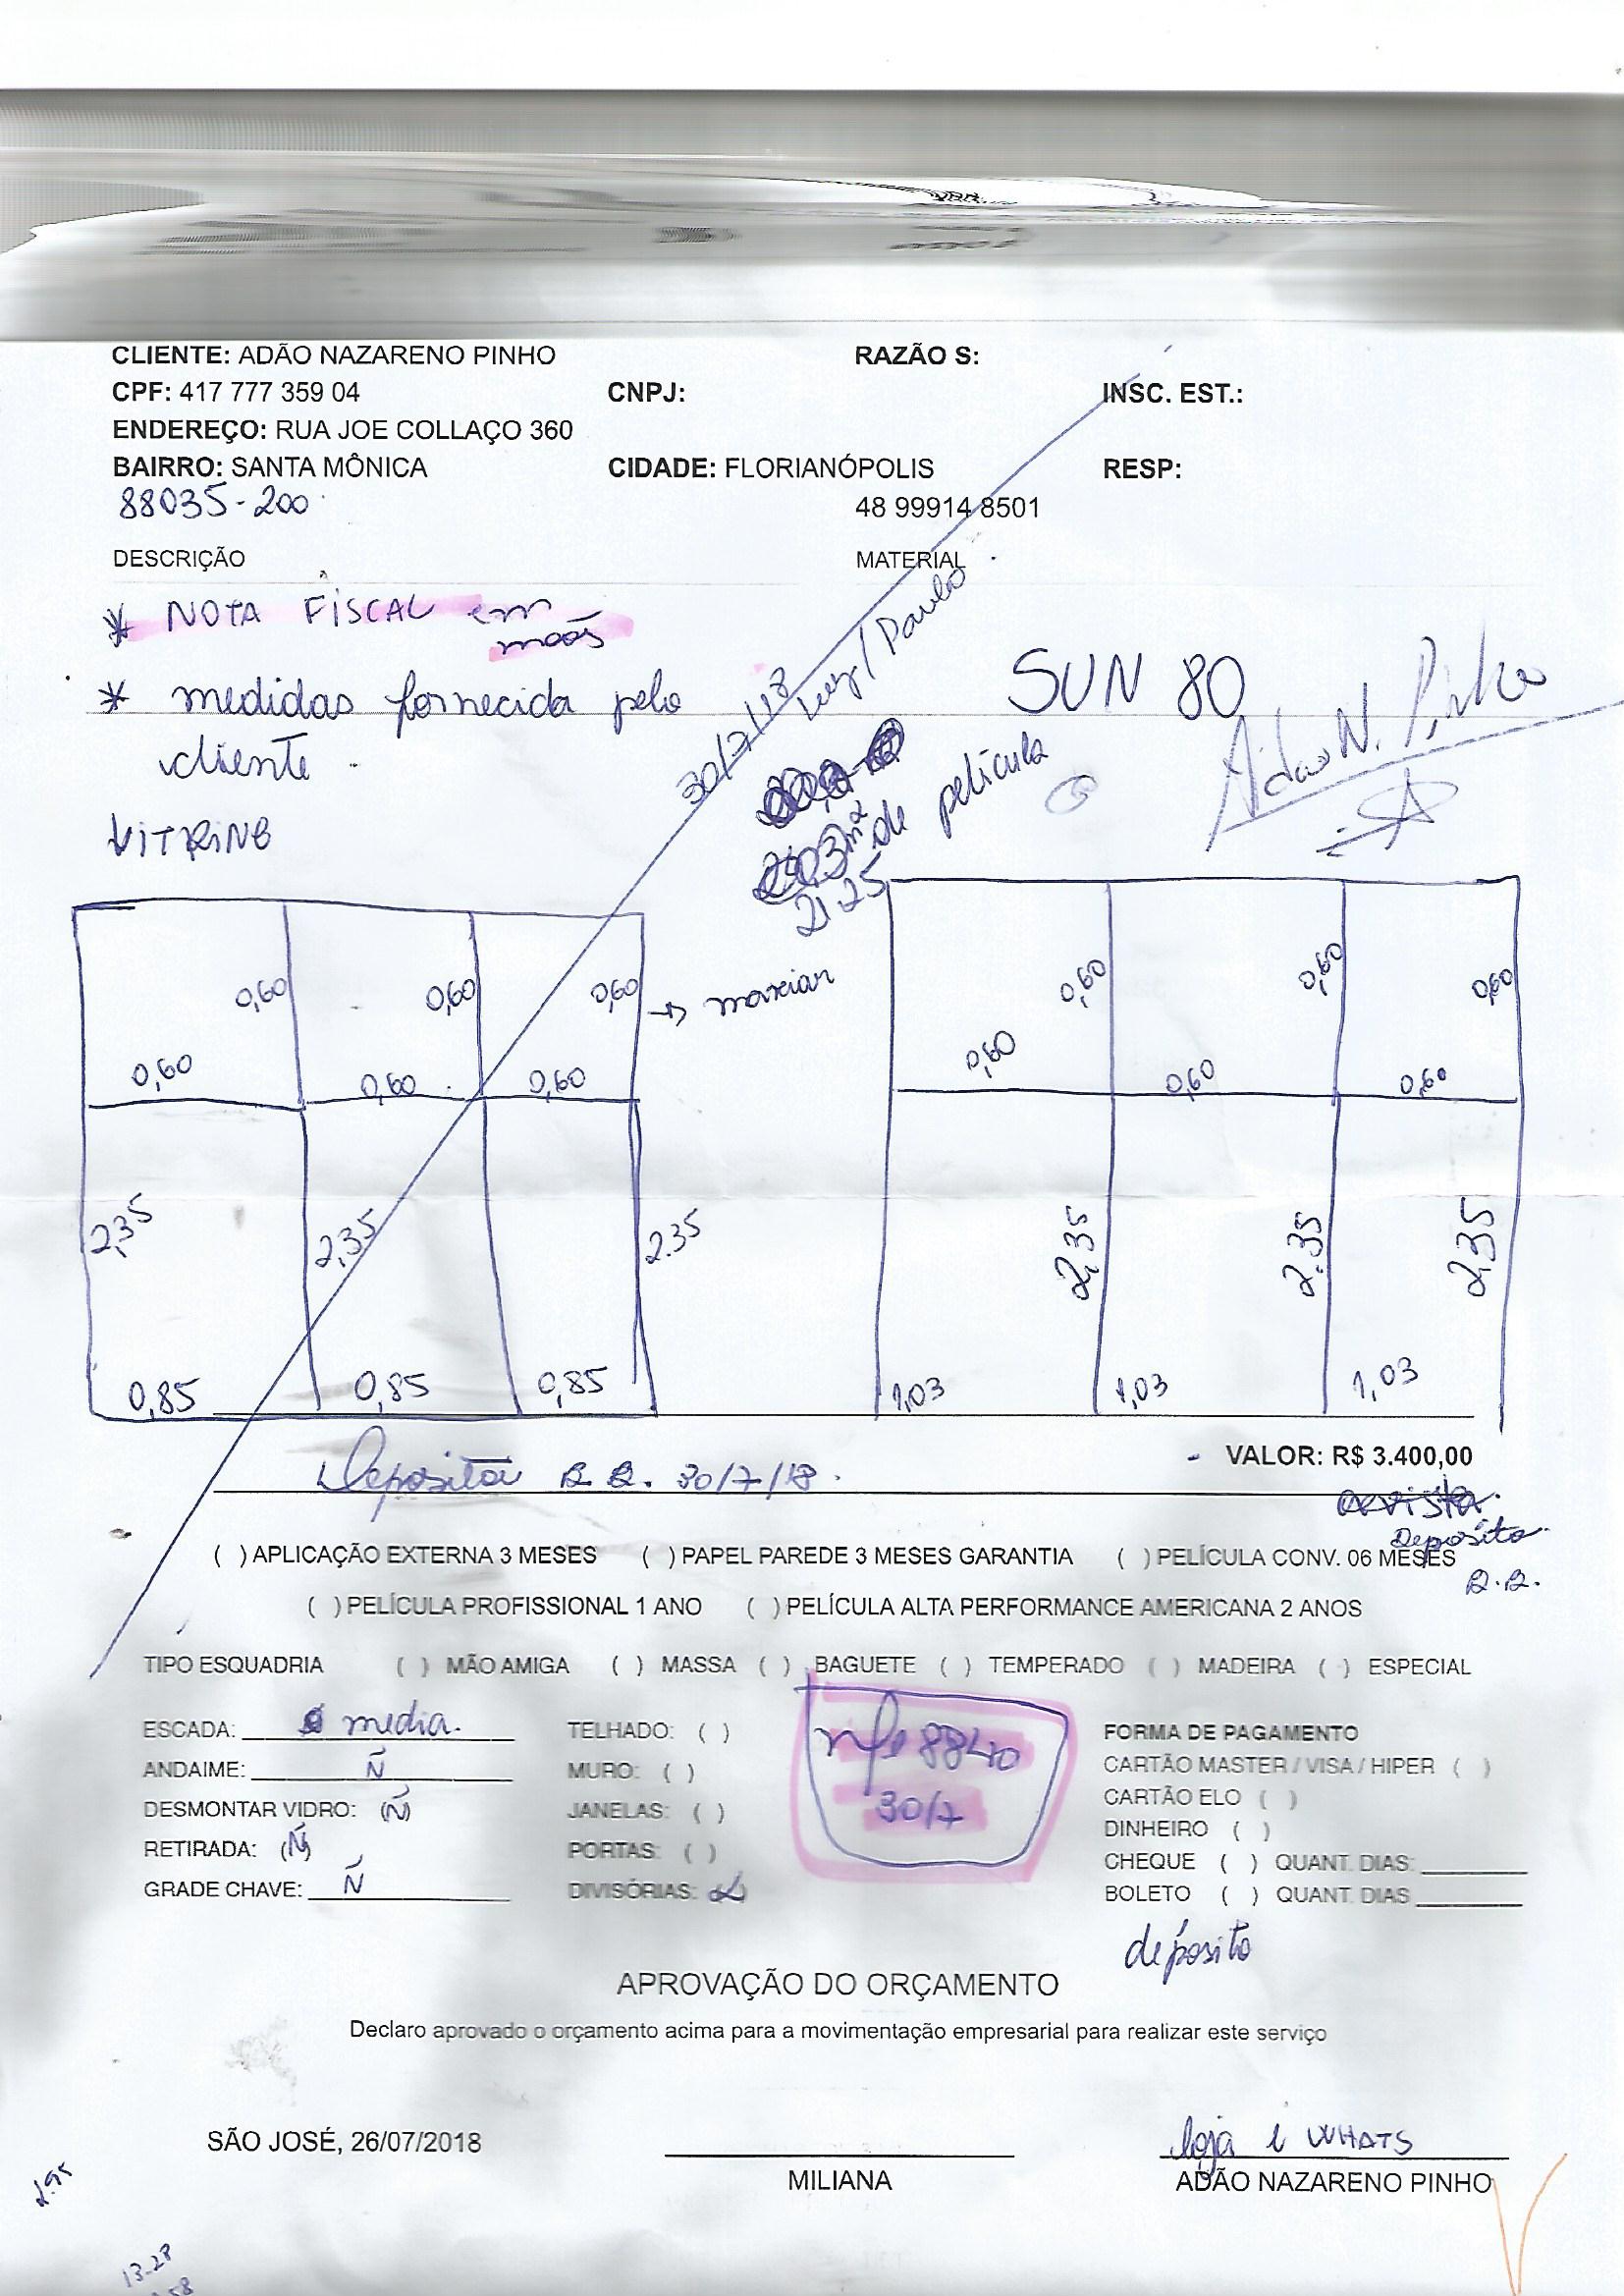 CLIENTE: ADÃO NAZARENO PINHO RAZÃO S:
CPF: 417 777 359 04 CNPJ: INSC. EST.:
ENDEREÇO: RUA JOE COLLAÇO 360
BAIRRO: SANTA MÔNICA CIDADE: FLORIANÓPOLIS RESP:
88035-200 48 99914 8501
DESCRIÇÃO MATERIAL
* NOTA FISCAL em
mãos
* medidas fornecida pelo
cliente.
VITRINE
30/7/18
Luiz/Paulo
SUN 80
Adão N. Pinho
m² de película
21.25
0,60 0,60 0,60
0,60 0,60 0,60
2,35 2,35 2.35
0,85 0,85 0,85
0,60 0,60 0,60
0,60 0,60 0,60
2,35 2.35 2,35
1,03 1,03 1,03
- VALOR: R$ 3.400,00
B.B. 30/7/18.
Depósito
B.B.
( ) APLICAÇÃO EXTERNA 3 MESES ( ) PAPEL PAREDE 3 MESES GARANTIA ( ) PELÍCULA CONV. 06 MESES
( ) PELÍCULA PROFISSIONAL 1 ANO ( ) PELÍCULA ALTA PERFORMANCE AMERICANA 2 ANOS
TIPO ESQUADRIA ( ) MÃO AMIGA ( ) MASSA ( ) BAGUETE ( ) TEMPERADO ( ) MADEIRA ( ) ESPECIAL
ESCADA: media.
ANDAIME: Ñ
DESMONTAR VIDRO: (Ñ)
RETIRADA: (Ñ)
GRADE CHAVE: Ñ
TELHADO: ( )
MURO: ( )
JANELAS: ( )
PORTAS: ( )
DIVISÓRIAS: (X)
8840
30/7
FORMA DE PAGAMENTO
CARTÃO MASTER / VISA / HIPER ( )
CARTÃO ELO ( )
DINHEIRO ( )
CHEQUE ( ) QUANT. DIAS:
BOLETO ( ) QUANT. DIAS
depósito
APROVAÇÃO DO ORÇAMENTO
Declaro aprovado o orçamento acima para a movimentação empresarial para realizar este serviço
SÃO JOSÉ, 26/07/2018
MILIANA
loja e WHATS
ADÃO NAZARENO PINHO
13-28